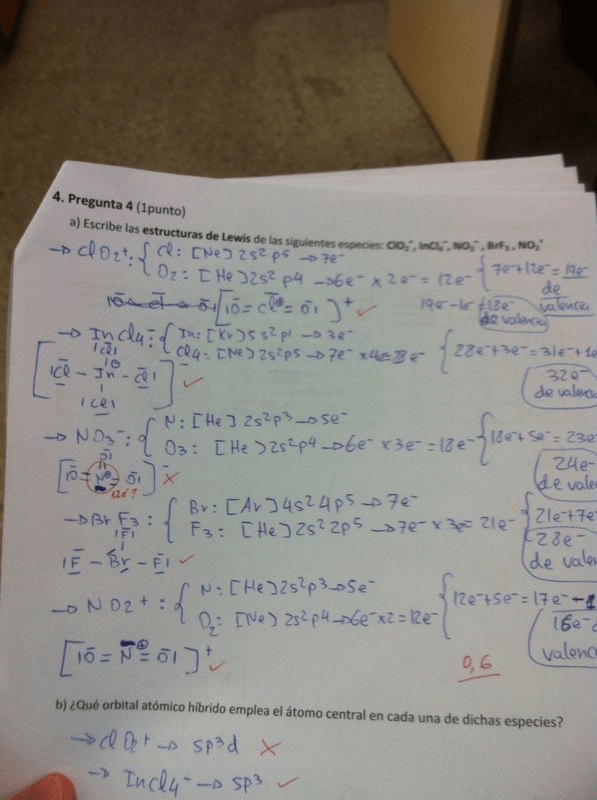 4. Pregunta 4 (1punto)
a) Escribe las estructuras de Lewis de las siguientes especies: ClO₂⁺, InCl₄⁻, NO₃⁻, BrF₃, NO₂⁺
→ ClO₂⁺: { Cl: [Ne] 2s² p⁵ → 7e⁻
O₂: [He] 2s² p⁴ → 6e⁻ × 2e⁻ = 12e⁻ { 7e⁻+12e⁻ = 19e⁻ de valencia
[IO = Cl⊕ = OI]⁺ ✓ 19e⁻ - 1e⁻ = 18e⁻ de valencia
→ InCl₄⁻: { In: [Kr] 5s² p¹ → 3e⁻
Cl₄: [Ne] 2s² p⁵ → 7e⁻ × 4e⁻ = 28e⁻ { 28e⁻+3e⁻ = 31e⁻ + 1e
IClI
[ICl - In - ClI]⁻ ✓ 32e⁻
IClI de valenc
→ NO₃⁻: { N: [He] 2s² p³ → 5e⁻
O₃: [He] 2s² p⁴ → 6e⁻ × 3e⁻ = 18e⁻ { 18e⁻+5e⁻ = 23e⁻
OI
[IO = N⊕ = OI]⁻ X 24e⁻
12e⁻? de vale
→ BrF₃: { Br: [Ar] 4s² 4p⁵ → 7e⁻
F₃: [He] 2s² 2p⁵ → 7e⁻ × 3e⁻ = 21e⁻ { 21e⁻+7e⁻
IFI 28e⁻
IF - Br - FI ✓ de valen
→ NO₂⁺: { N: [He] 2s² p³ → 5e⁻
O₂: [Ne] 2s² p⁴ → 6e⁻ × 2 = 12e⁻ { 12e⁻+5e⁻ = 17e⁻ - 1
16e⁻
[IO = N⊕ = OI]⁺ ✓ valenc
0,6
b) ¿Qué orbital atómico híbrido emplea el átomo central en cada una de dichas especies?
→ ClO₂⁺ → sp³d X
→ InCl₄⁻ → sp³ ✓